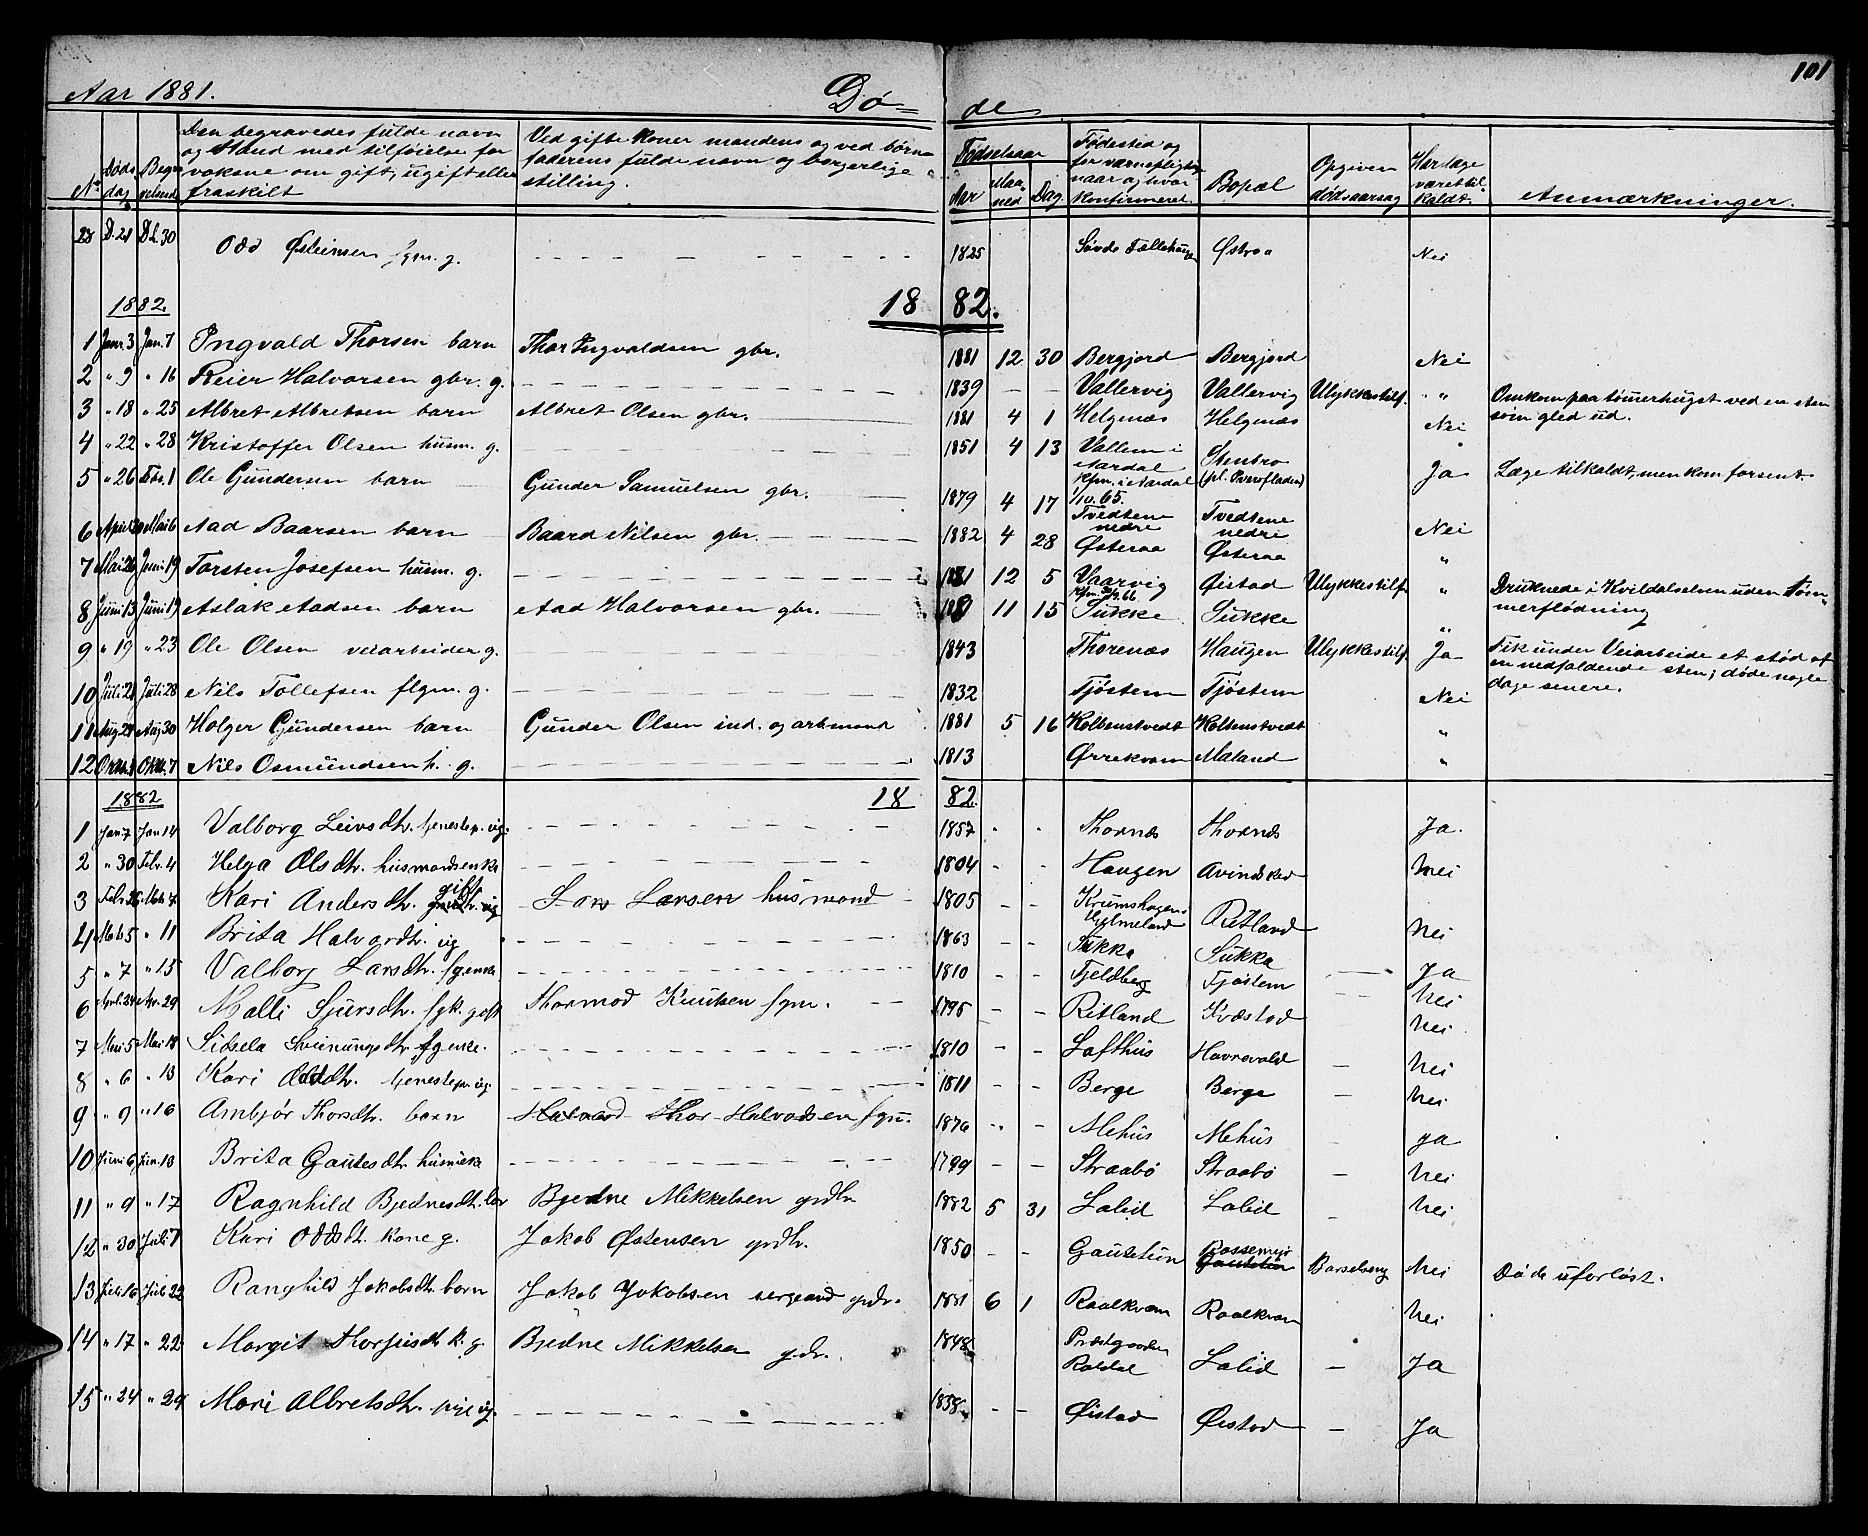 101
Aar 1881. Dø= de
No Døds dag Begravelsesd. Den begravedes fulde navn og Stand med tilføielse for voksne om gift, ugift eller fraskilt Ved gifte koner mandens og ved børn faderens fulde navn og borgerlige stilling. Fødselsaar Aar Maaned Dag. Fødested og for værnepligtige naar og hvor konfirmeret. Bopæl Opgiven dødsaarsag Har læge været tilkaldt. Anmærkninger.
28 D. 21 D. 30 Odd Østeinsen fgm. g. 1825 Søvde Østraa Nei
1882. 1882.
1 Jan. 3 Jan. 7 Ingvald Thorsen barn Thor Ingvaldsen gbr. 1881 12 30 Bergjord Bergjord Nei
2 " 9 " 16 Reier Halvorsen gbr. g. 1839 Vallervig Vallervig Ulykkestilf. " Omkom paa tømmerhugst ved en sten som gled ud.
3 " 18 " 25 Albret Albretsen barn Albret Olsen gbr. 1881 4 1 Helgenæs Helgenæs Nei
4 " 22 " 28 Kristoffer Olsen husm. g. 1851 4 13 Vallem i Aardal Kfm. i Aardal 1/10. 65. Stenbro Ja Læge tilkaldt, men kom forsent.
5 " 26 Febr. 1 Ole Gundersen barn Gunder Samuelsen gbr. 1879 4 17 Tvedtene nedre Tvedtene nedre Nei
6 Mai 6 Aad Baarsen barn Baard Nilsen gbr. 1882 4 28 Østeraa Østeraa "
7 Mai 26 Juni 19 Torsten Josefsen husm. g. 12 5 Vaarvig Øistad Ulykkestilf. " Druknede i Kvildalselven under Tømmerflødning
8 Juni 13 Juni 19 Aslak Aadsen barn Aad Halvorsen gbr. 11 15 Sukke Sukke "
9 " 19 " 23 Ole Olsen veiarbeider g. 1843 Thorenæs Haugen Ulykkestilf. Ja Fik under Veiarbeide et stød af en nedfaldende sten; døde nogle dage senere.
10 Juli 21 Juli 28 Nils Tollefsen flgm. g. 1832 Tjøstem Tjøstem Nei
11 Aug. 24 Aug 30 Holger Gundersen barn Gunder Olsen ind. og arbmand 1881 5 16 Kolbenstvedt Kolbenstvedt "
12 Oktb. Oktb. 7 Nils Osmundsen h. g. 1813 Ørrekvam Maland "
1882 1882
1 Jan 7 Jan 14 Valborg Leivsdtr. tjenestep. ug. 1857 Thornæs Thornæs Ja.
2 " 30 Febr. 4 Helga Olsdtr. husmandsenke 1804 Haugen Avindsked Nei
3 Febr. 26 Mts. 4 Kari Andersdtr. gift Lars Larsen husmand 1805 Hjelmeland Ritland Nei
4 Mts 5 " 11 Brita Halvardtr. ug 1863 Sukka Sukka Ja
5 " 7 " 15 Valborg Larsdtr. fgenke 1810 Fjeldberg Tjøstem Nei
6 Apr. 24 Apr. 29 Malli Sjursdtr. fgk. gift Thormod Knutsen fgm. 1795 Ritland Kvæstad Nei
7 Mai 5 Mai 18 Sidsela Sveinungsdtr fgenke. 1810 Lofthus Havrevold Nei
8 " 6 " 13 Kari Oddsdtr. tjenestep. ug. 1811 Berge Berge Nei
9 " 9 " 16 Ambjør Thorsdtr. barn Halvard Thor Halvorsen fgm. 1876 Mehus Mehus ja
10 Juni 6 Jun. 13 Brita Gautesdtr husmenke 1799 Straabø Straabø Nei
11 " 9 " 17 Ragnhild Bjednesdtr. bar Bjedne Mikkelsen grdbr 1882 5 31 Lalid Lalid Nei
12 " 30 Juli 7 Kari Oddsdtr. Kone g. Jakob Østensen grdbr. 1850 Gautetun Rossemyr Gautetun Barselseng Nei Døde uforløst.
13 Juli 16 Juli 22 Ranghild Jakobsdtr barn Jakob Jakobsen sergeant grdr. 1881 6 1 Raalkvam Raalkvam Nei
14 " 17 " 22 Margit Thorjusdtr k. g. Bjedne Mikkelsen grdr. 1848 Præstgaarden Røldal Lalid Ja
15 " 24 " 29 Mari Albretsdtr. pige ug. 1838 Øistad Øistad Ja